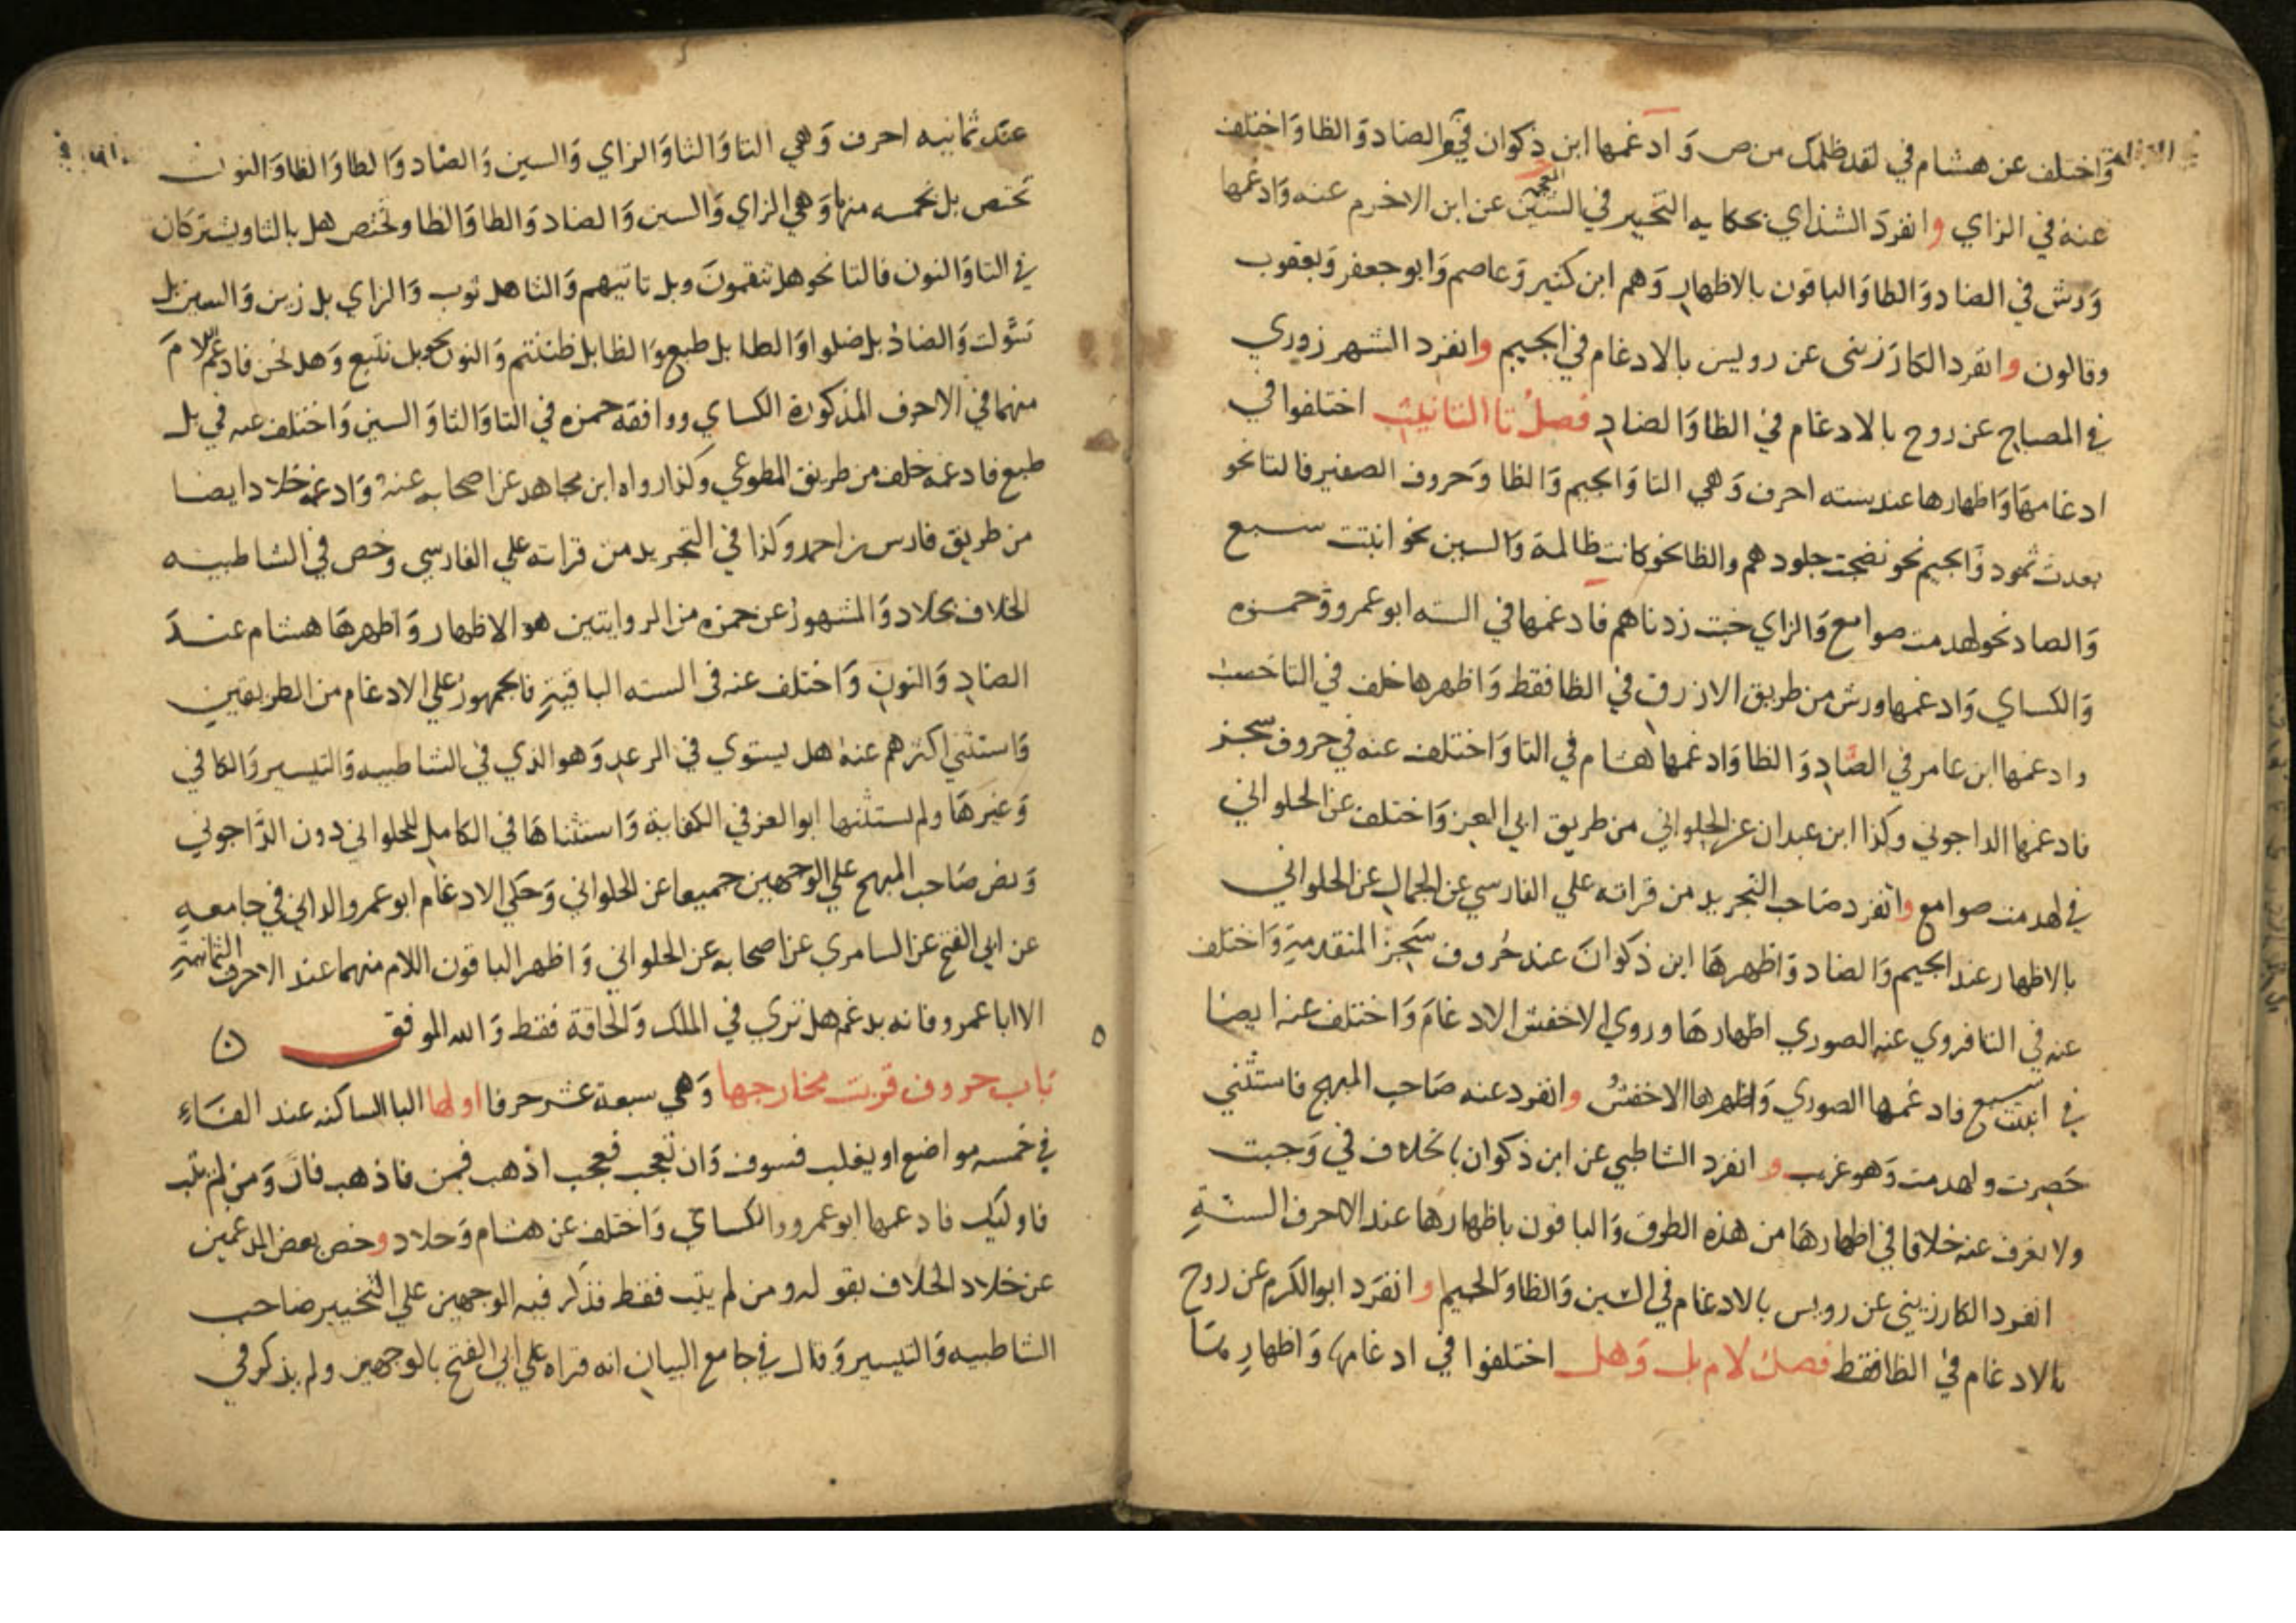 واختلف عن هشام في لقد ظلمك من ص وادغمها ابن ذكوان في الصاد والظا واختلف
عنه في الزاي وانفرد الشذاي بحكايه التخيير في الشين المعجمه عن ابن الاخرم عنه وادغمها
ورش في الضاد والظا والباقون بالاظهار وهم ابن كثير وعاصم وابو جعفر ويعقوب
وقالون وانفرد الكارزيني عن رويس بالادغام في الجيم وانفرد الشهرزوري
في المصباح عن روح بالادغام في الظا والضاد فصل تا التانيث اختلفوا في
ادغامها واظهارها عند سته احرف وهي الثا والجيم والظا وحروف الصفير فالثا نحو
بعدت ثمود والجيم نحو نضجت جلودهم والظا نحو كانت ظالمة والسين نحو انبتت سبع
والصاد نحو لهدمت صوامع والزاي خبت زدناهم فادغمها في السته ابو عمرو وحمزه
والكساي وادغمها ورش من طريق الازرق في الظا فقط واظهرها خلف في الثا حسب
وادغمها ابن عامر في الصاد والظا وادغمها هشام في الثا واختلف عنه في حروف سجز
فادغمها الداجوني وكذا ابن عبدان عن الحلواني من طريق ابي العز واختلف عن الحلواني
في لهدمت صوامع وانفرد صاحب التجريد من قراته علي الفارسي عن الجمال عن الحلواني
بالاظهار عند الجيم والصاد واظهرها ابن ذكوان عند حروف سجز المتقدمة واختلف
عنه في الثا فروي عنه الصوري اظهارها وروي الاخفش الادغام واختلف عنه ايضا
في انبتت سبع فادغمها الصوري واظهرها الاخفش وانفرد عنه صاحب المبهج فاستثني
حصرت ولهدمت وهو غريب وانفرد الشاطبي عن ابن ذكوان بالخلاف في وجبت
ولا نعرف عنه خلافا في اظهارها من هذه الطرق والباقون باظهارها عند الاحرف الستة
انفرد الكارزيني عن رويس بالادغام في السين والظا والجيم وانفرد ابو الكرم عن روح
بالادغام في الظا فقط فصل لام بل وهل اختلفوا في ادغامها واظهارها
عند ثمانيه احرف وهي التا والثا والزاي والسين والضاد والطا والظا والنون
تختص بل بخمسه منها وهي الزاي والسين والضاد والطا والظا وتختص هل بالثا ويشتركان
في التا والنون فالتا نحو هل تنقمون وبل تاتيهم والثا هل ثوب والزاي بل زين والسين بل
سولت والضاد بل ضلوا والطا بل طبع والظا بل ظننتم والنون نحو بل نتبع وهل نحن فادغم اللام
منهما في الاحرف المذكورة الكساي ووافقه حمزه في التا والثا والسين واختلف عنه في بل
طبع فادغمه خلف من طريق المطوعي وكذا رواه ابن مجاهد عن اصحابه عنه وادغمه خلاد ايضا
من طريق فارس بن احمد وكذا في التجريد من قراته علي الفارسي وخص في الشاطبيه
الخلاف بخلاد والمشهور عن حمزه من الروايتين هو الاظهار واظهرها هشام عند
الضاد والنون واختلف عنه في السته الباقية فالجمهور علي الادغام من الطريقين
واستثني اكثرهم عنه هل يستوي في الرعد وهو الذي في الشاطبيه والتيسير والكافي
وغيرها ولم يستثنها ابو العز في الكفاية واستثناها في الكامل للحلواني دون الداجوني
ونص صاحب المبهج علي الوجهين جميعا عن الحلواني وحكي الادغام ابو عمرو الداني في جامعه
عن ابي الفتح عن السامري عن اصحابه عن الحلواني واظهر الباقون اللام منهما عند الاحرف الثمانية
الا ابا عمرو فانه يدغم هل تري في الملك والحاقة فقط والله الموفق
باب حروف قربت مخارجها وهي سبعة عشر حرفا اولها البا الساكنه عند الفاء
في خمسه مواضع او يغلب فسوف وان تعجب فعجب اذهب فمن فاذهب فان ومن لم يتب
فاوليك فادغمها ابو عمرو والكساي واختلف عن هشام وخلاد وخص بعض المدغمين
عن خلاد الخلاف بقوله ومن لم يتب فقط فذكر فيه الوجهين علي التخيير صاحب
الشاطبيه والتيسير وقال في جامع البيان انه قراه علي ابي الفتح بالوجهين ولم يذكر في